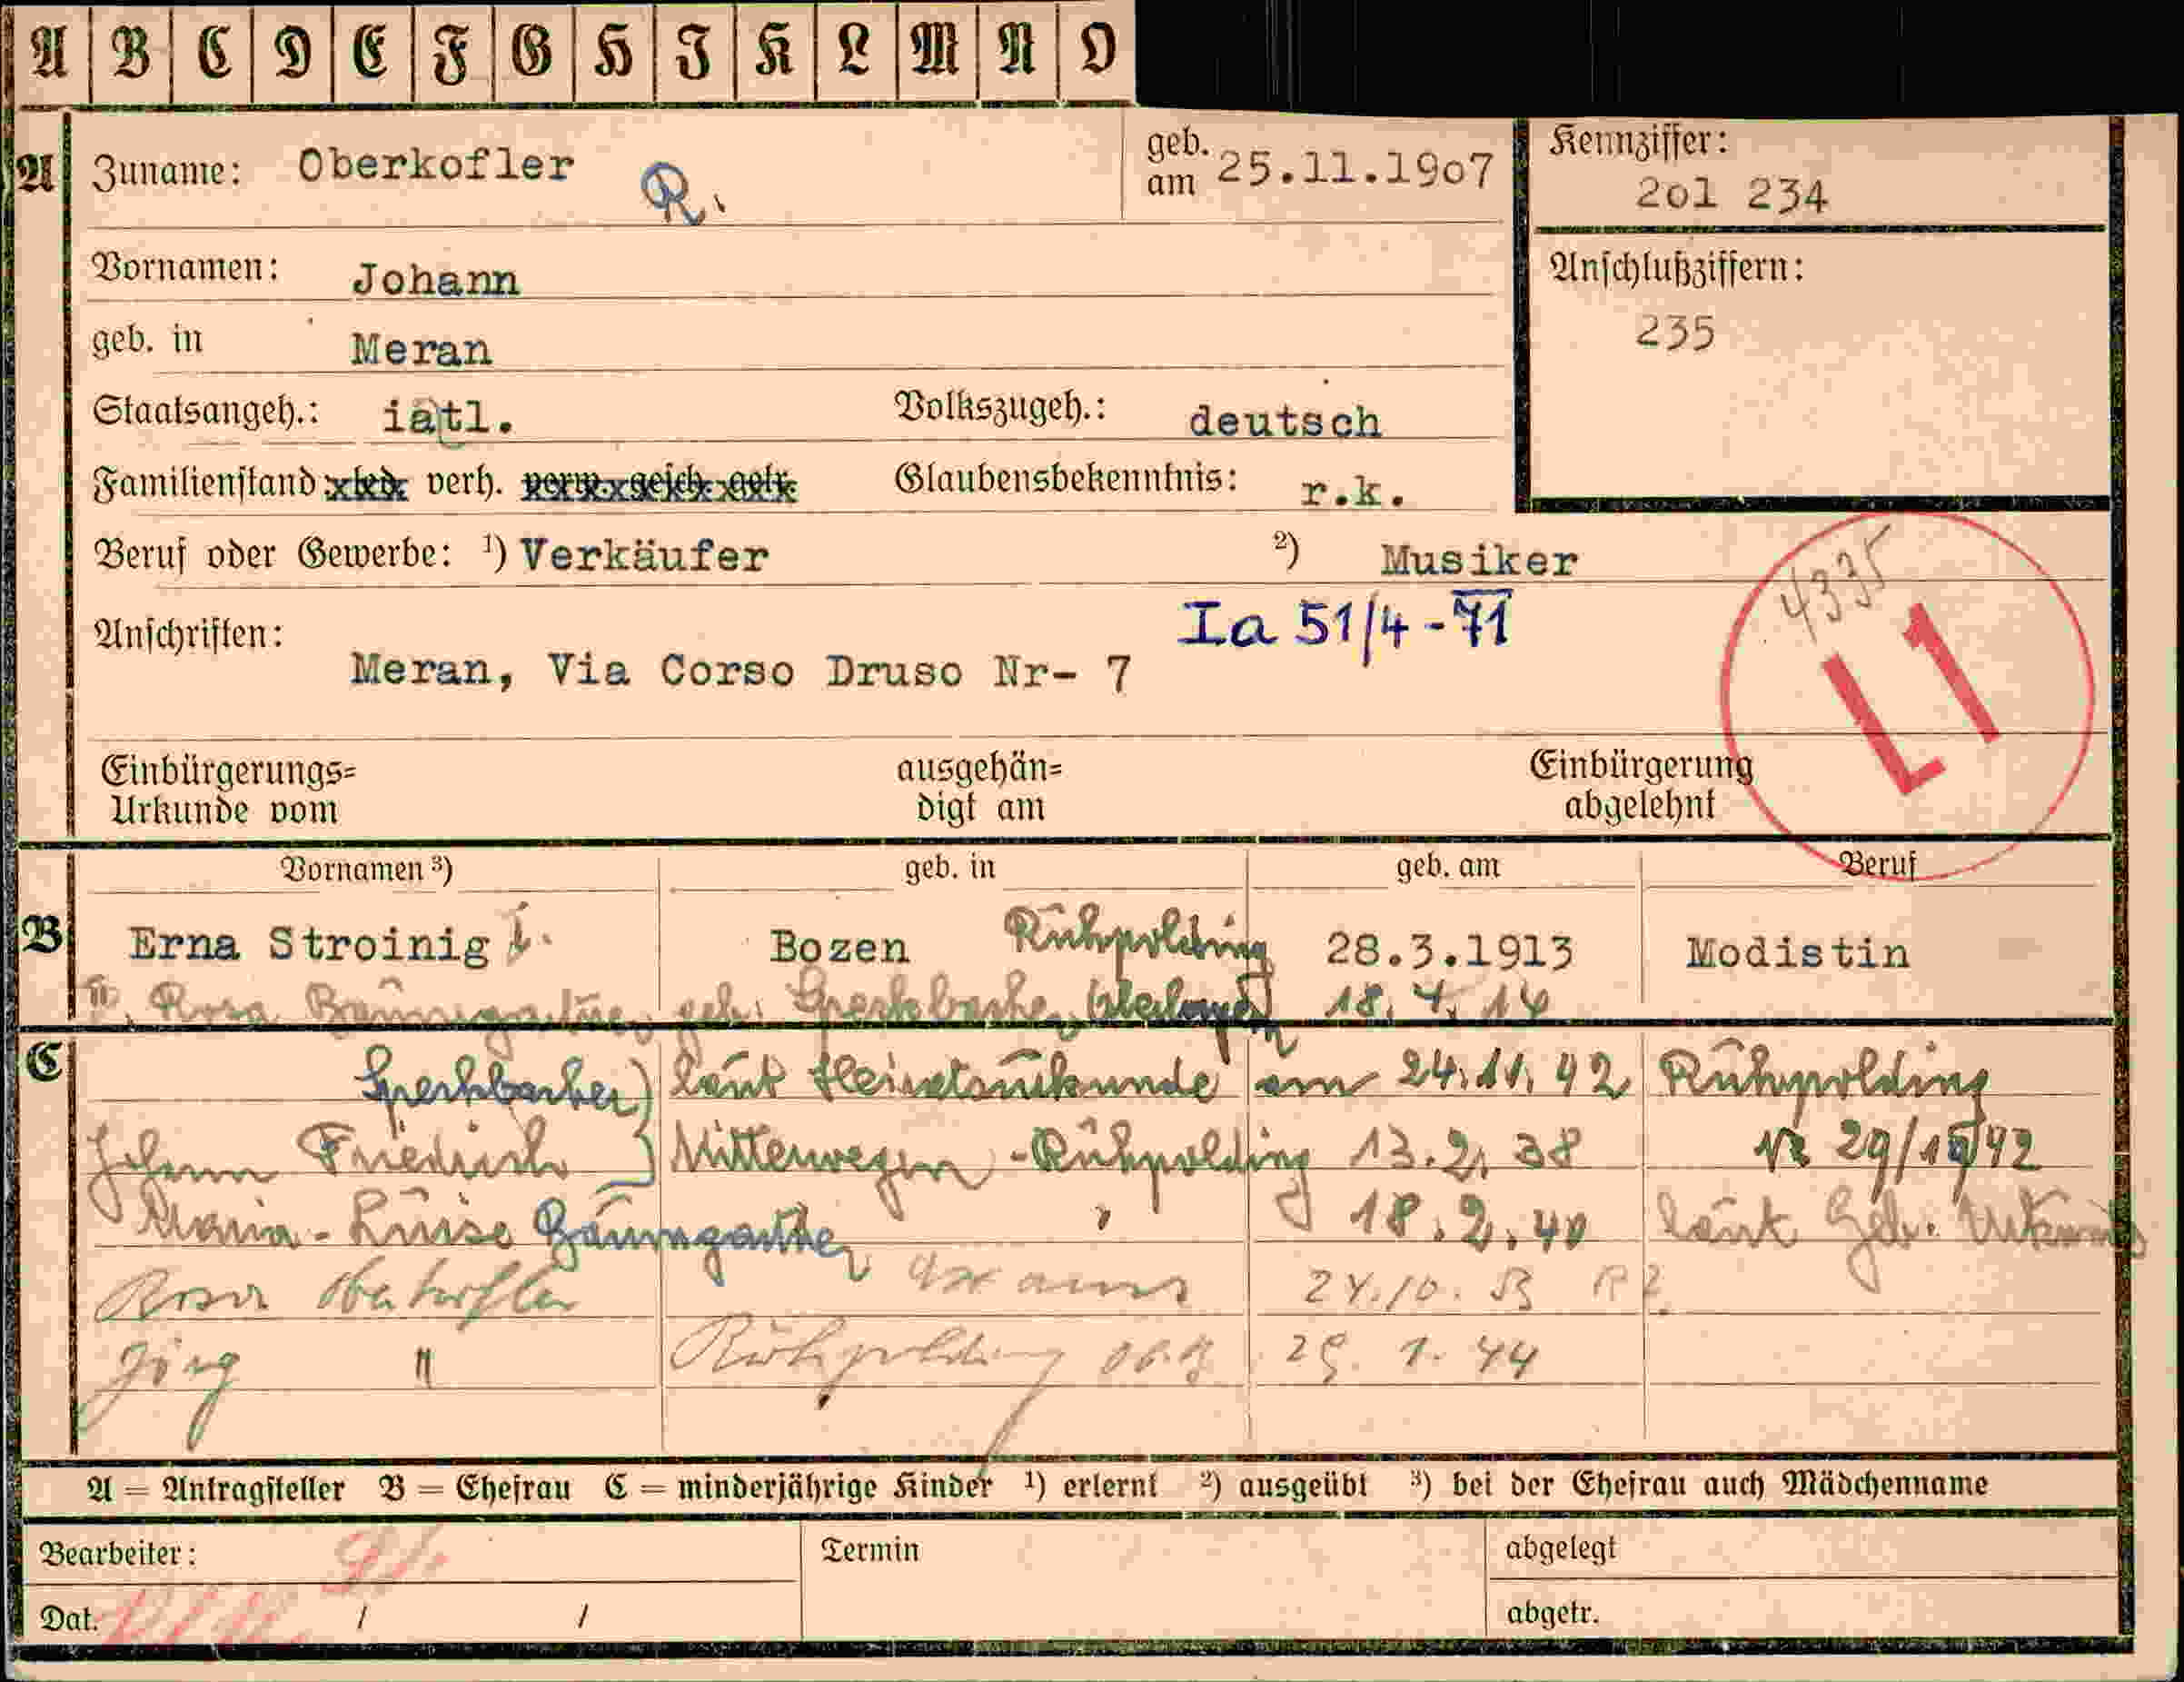 A B C D E F G H I K L M N O
A Zuname: Oberkofler R. geb. am 25.11.19o7
Kennziffer:
2o1 234
Vornamen: Johann
Anschlußziffern:
235
geb. in Meran
Staatsangeh.: iatl. Volkszugeh.: deutsch
Familienstand led. verh. verw. gesch. getr. Glaubensbekenntnis: r.k.
Beruf oder Gewerbe: 1) Verkäufer 2) Musiker
4335
L1
Ia 51/4-71
Anschriften:
Meran, Via Corso Druso Nr- 7
Einbürgerungs= ausgehän= Einbürgerung
Urkunde vom digt am abgelehnt
Vornamen 3) geb. in geb. am Beruf
B Erna Stroinig Bozen Ruhpolding 28.3.1913 Modistin
II. Rosa Baumgartner geb. Speckbacher 18. 4. 14
C Speckbacher) laut Heiratsurkunde am 24.11.42 Ruhpolding
Johann Friedrich Mitterwegen - Ruhpolding 13.2.38
Maria-Luise Baumgartner " 18.2.40 laut Geb. Urkunde
Rosa Oberkofler 24.10.
Jörg " Ruhpolding 29. 1. 44
A = Antragsteller B = Ehefrau C = minderjährige Kinder 1) erlernt 2) ausgeübt 3) bei der Ehefrau auch Mädchenname
Bearbeiter: Termin abgelegt
Dat. / / abgetr.